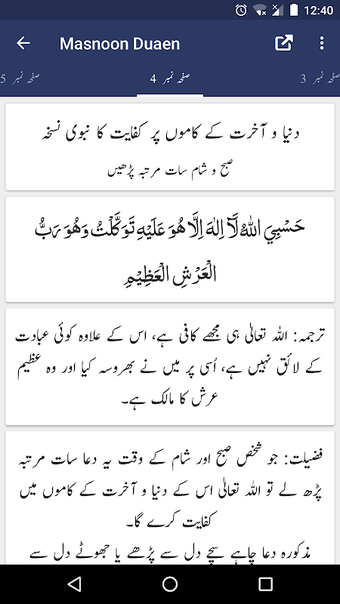 12:40
Masnoon Duaen
صفحہ نمبر 3
صفحہ نمبر 4
صفحہ نمبر 5
دنیا و آخرت کے کاموں پر کفایت کا نبوی نسخہ
صبح و شام سات مرتبہ پڑھیں
حَسْبِيَ اللهُ لَآ اِلٰهَ اِلَّا هُوَ عَلَيْهِ تَوَكَّلْتُ وَهُوَ رَبُّ
الْعَرْشِ الْعَظِيْمِ
ترجمہ: اللہ تعالیٰ ہی مجھے کافی ہے، اس کے علاوہ کوئی عبادت
کے لائق نہیں ہے، اُسی پر میں نے بھروسہ کیا اور وہ عظیم
عرش کا مالک ہے۔
فضیلت: جو شخص صبح اور شام کے وقت یہ دعا سات مرتبہ
پڑھ لے تو اللہ تعالیٰ اس کے دنیا و آخرت کے کاموں میں
کفایت کرے گا۔
مذکورہ دعا چاہے سچے دل سے پڑھے یا جھوٹے دل سے